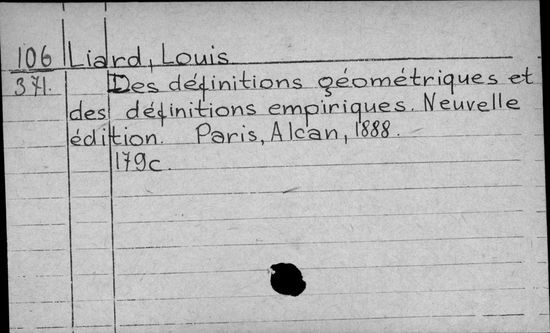 106 Liard, Louis
371. Des définitions géométriques et
des définitions empiriques. Neuvelle
édition. Paris, Alcan, 1888.
179c.